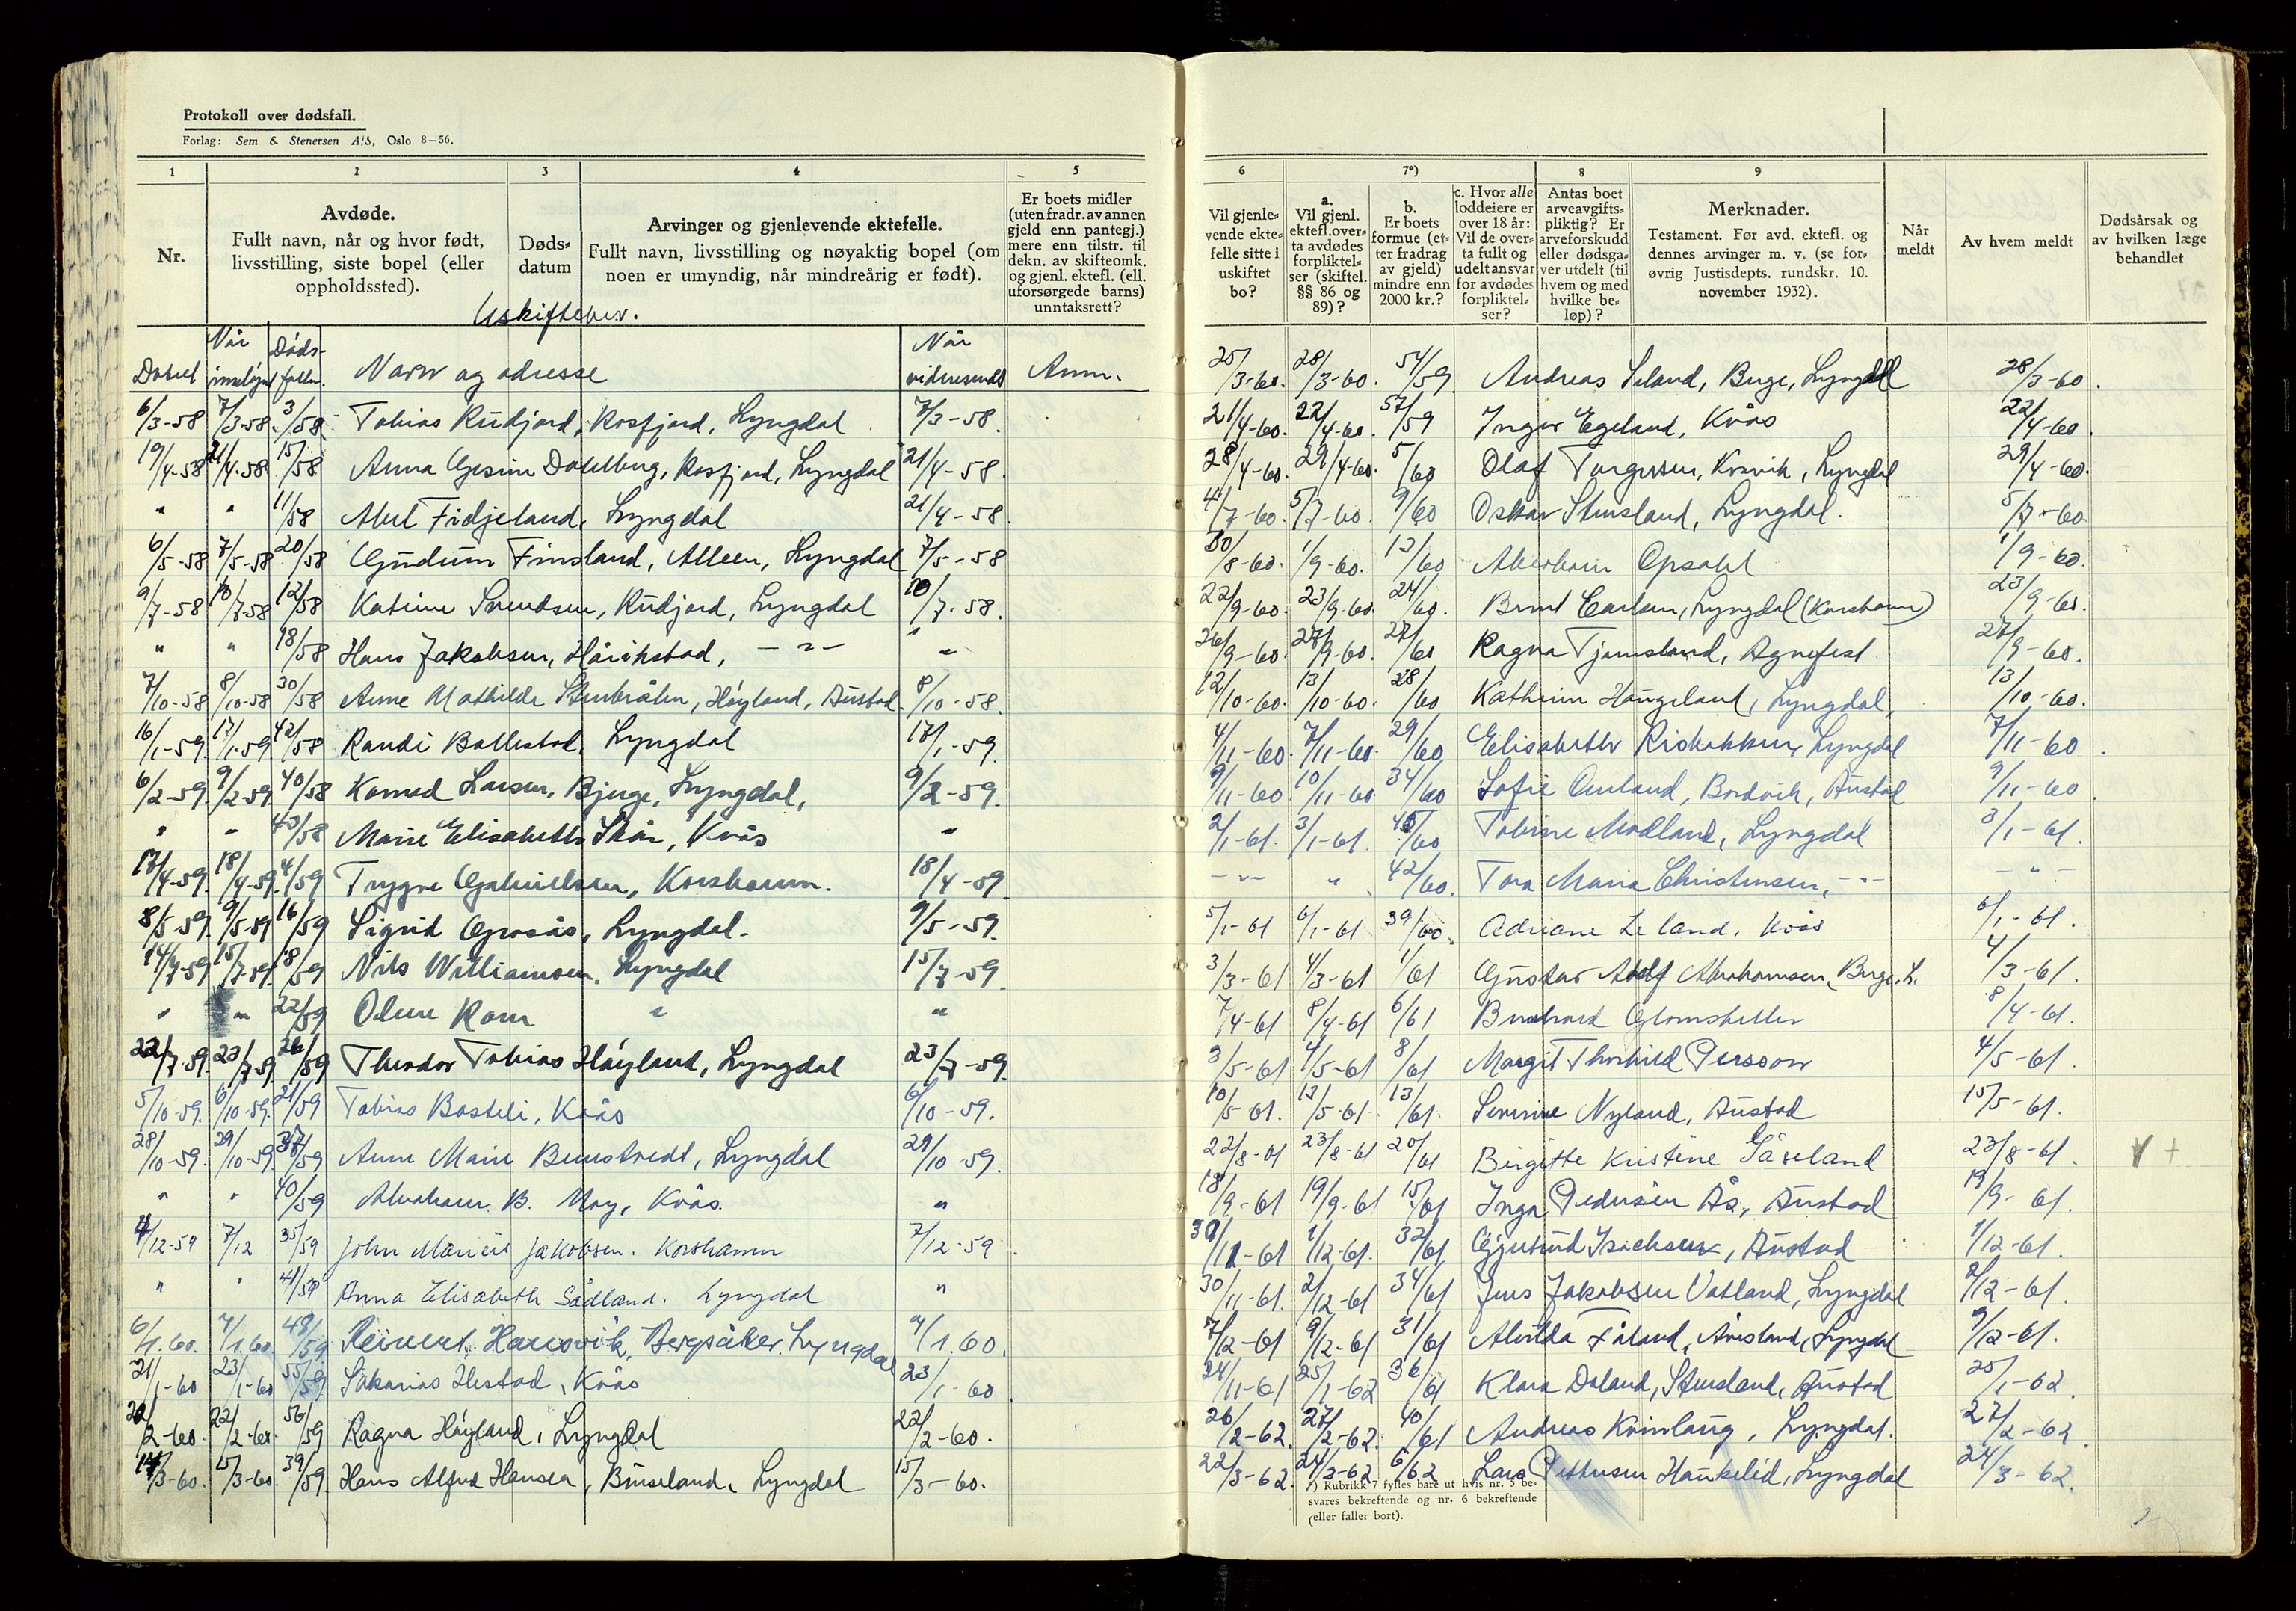 Protokoll over dødsfall.
Forlag: Sem & Stenersen A/S, Oslo 8–56.
1 2 3 4 5
Nr.
Avdøde.
Fullt navn, når og hvor født,
livsstilling, siste bopel (eller
oppholdssted).
Døds-
datum
Arvinger og gjenlevende ektefelle.
Fullt navn, livsstilling og nøyaktig bopel (om
noen er umyndig, når mindreårig er født).
Er boets midler
(uten fradr. av annen
gjeld enn pantegj.)
mere enn tilstr. til
dekn. av skifteomk.
og gjenl. ektefl. (ell.
uforsørgede barns)
unntaksrett?
Uskiftebev.
Datert Når innsløynt Dødsfallnr. Navn og adresse Når videresendt Anm.
6/3-58 7/3-58 3/58 Tobias Rudjord, Rosfjord, Lyngdal 7/3-58.
19/4-58 21/4-58 15/58 Anna Gesine Dahlberg, Rosfjord, Lyngdal 21/4-58.
" " 11/58 Abel Fidjeland, Lyngdal 21/4-58.
6/5-58 7/5-58 20/58 Gudrun Finsland, Alleen, Lyngdal 7/5-58
9/7-58 10/7-58 12/58 Katrine Svendsen, Rudjord, Lyngdal 10/7-58.
" " 18/58 Hans Jakobsen, Hårikstad, — " — "
7/10-58 8/10-58 30/58 Anne Mathilde Stenbråten, Høyland, Austad. 8/10-58.
16/1-59. 17/1-59 42/58 Randi Ballestad, Lyngdal 17/1-59.
6/2-59. 9/2-59. 40/58 Konrad Larsen, Bjerge, Lyngdal, 9/2-59.
" " 43/58 Marie Elisabeth Skår, Kvås "
17/4-59. 18/4-59. 4/59 Trygve Gabrielsen, Korshamn. 18/4-59
8/5-59. 9/5-59 16/59 Sigrid Grosås, Lyngdal. 9/5-59.
14/7-59 15/7-59. 18/59 Nils Williamsen, Lyngdal 15/7-59.
" " 22/59 Olene Rom " "
22/7-59. 23/7-59 26/59 Theodor Tobias Høyland, Lyngdal 23/7-59.
5/10-59. 6/10-59. 21/59 Tobias Bosteli, Kvås 6/10-59.
28/10-59. 29/10-59 37/59 Anne Marie Benestvedt, Lyngdal 29/10-59.
" " 40/59 Abraham B. Moy, Kvås. "
4/12-59 7/12 35/59 John Marius Jakobsen. Korshamn 7/12-59.
" " 41/59 Anna Elisabeth Sådland. Lyngdal "
6/1.60. 7/1.60 48/59 Reinert Haresvik, Bergsåker. Lyngdal 7/1.60.
21/1-60 23/1-60 55/59 Sakarias Ilestad, Kvås 23/1-60.
20/2-60. 22/2-60. 56/59 Ragna Høyland, Lyngdal 22/2-60.
14/3-60. 15/3-60. 39/59. Hans Alfred Hansen, Buseland, Lyngdal 15/3-60.
6 7*) 8 9
Vil gjenle-
vende ekte-
felle sitte i
uskiftet
bo?
a.
Vil gjenl.
ektefl. over-
ta avdødes
forpliktel-
ser (skiftel.
§§ 86 og
89)?
b.
Er boets
formue (et-
ter fradrag
av gjeld)
mindre enn
2000 kr.?
c. Hvor alle
loddeiere er
over 18 år:
Vil de over-
ta fullt og
udelt ansvar
for avdødes
forpliktel-
ser?
Antas boet
arveavgifts-
pliktig? Er
arveforskudd
eller dødsga-
ver utdelt (til
hvem og med
hvilke be-
løp)?
Merknader.
Testament. Før avd. ektefl. og
dennes arvinger m. v. (se for-
øvrig Justisdepts. rundskr. 10.
november 1932).
Når
meldt
Av hvem meldt
Dødsårsak og
av hvilken læge
behandlet
25/3-60. 28/3-60. 54/59 Andreas Seland, Berge, Lyngdal 28/3-60.
21/4-60. 22/4-60. 57/59 Inger Egeland, Kvås 22/4-60.
28/4-60. 29/4-60. 5/60 Olaf Torgersen, Kvavik, Lyngdal 29/4-60.
4/7-60. 5/7-60. 9/60 Oskar Stensland, Lyngdal. 5/7-60
30/8-60. 1/9-60. 13/60 Abraham Opsahl 1/9-60.
22/9-60. 23/9-60. 24/60. Bernt Carlsen, Lyngdal (Korshamn) 23/9-60.
26/9-60. 27/9-60. 27/60 Ragna Tjomsland, Agnefest 27/9-60.
12/10-60. 13/10-60. 28/60 Kathrine Haugeland, Lyngdal, 13/10-60.
4/11-60. 7/11-60. 29/60 Elisabeth Risbakken, Lyngdal 7/11-60.
9/11-60. 10/11-60 34/60 Sofie Omland, Bordvik, Austad 9/11-60
2/1-61. 3/1-61. 45/60 Tobine Modland, Lyngdal 3/1-61.
— " — " 42/60. Tora Maria Christensen, — " — — " —
5/1-61 6/1-61 39/60. Adriane Leland, Kvås 6/1-61.
3/3-61 4/3-61 1/61 Gustav Adolf Abrahamsen, Berge, L. 4/3-61.
7/4-61 8/4-61 6/61 Bernhard Glomsheller 8/4-61.
3/5-61 4/5-61 8/61 Margit Thorhild Persson 4/5-61.
10/5-61. 13/5-61 13/61 Severine Nyland, Austad 15/5-61.
22/8-61 23/8-61 20/61 Birgitte Kristine Gåseland 23/8-61. +
18/9-61 19/9-61 15/61 Inga Pedersen Ås, Austad 19/9-61.
30/11-61 1/12-61. 32/61 Gjertrud Isachsen, Austad 1/12-61.
30/11-61. 2/12-61 34/61 Jens Jakobsen Vatland, Lyngdal 2/12-61.
7/12-61 9/12-61 31/61 Alvilda Fåland, Årisland, Lyngdal 9/12-61.
24/11-61 25/1-62 36/61 Klara Doland, Stensland, Austad 25/1-62.
26/2-62. 27/2-62. 40/61 Andreas Kvinlaug, Lyngdal. 27/2-62.
22/3-62. 24/3-62 6/62 Lars Pettersen Haukelid, Lyngdal 24/3-62.
*) Rubrikk 7 fylles bare ut hvis nr. 5 be-
svares bekreftende og nr. 6 bekreftende
(eller faller bort).